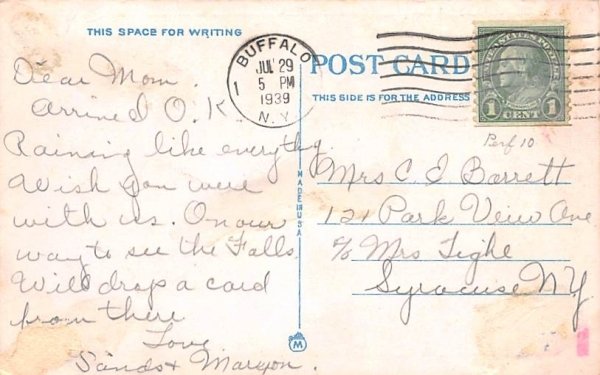 THIS SPACE FOR WRITING
BUFFALO
JUL 29
5 PM
1939
N.Y.
1
UNITED STATES POSTAGE
1 CENT 1
POST CARD
THIS SIDE IS FOR THE ADDRESS
Perf 10
Dear Mom.
Arrived O.K.
Raining like everythg
Wish you were
with us. On our
way to see the Falls
Will drop a card
from there
Love
MADE IN USA
M
Mrs C. E Barrett
121 Park View Ave
% Mrs Tighe
Syracuse NY